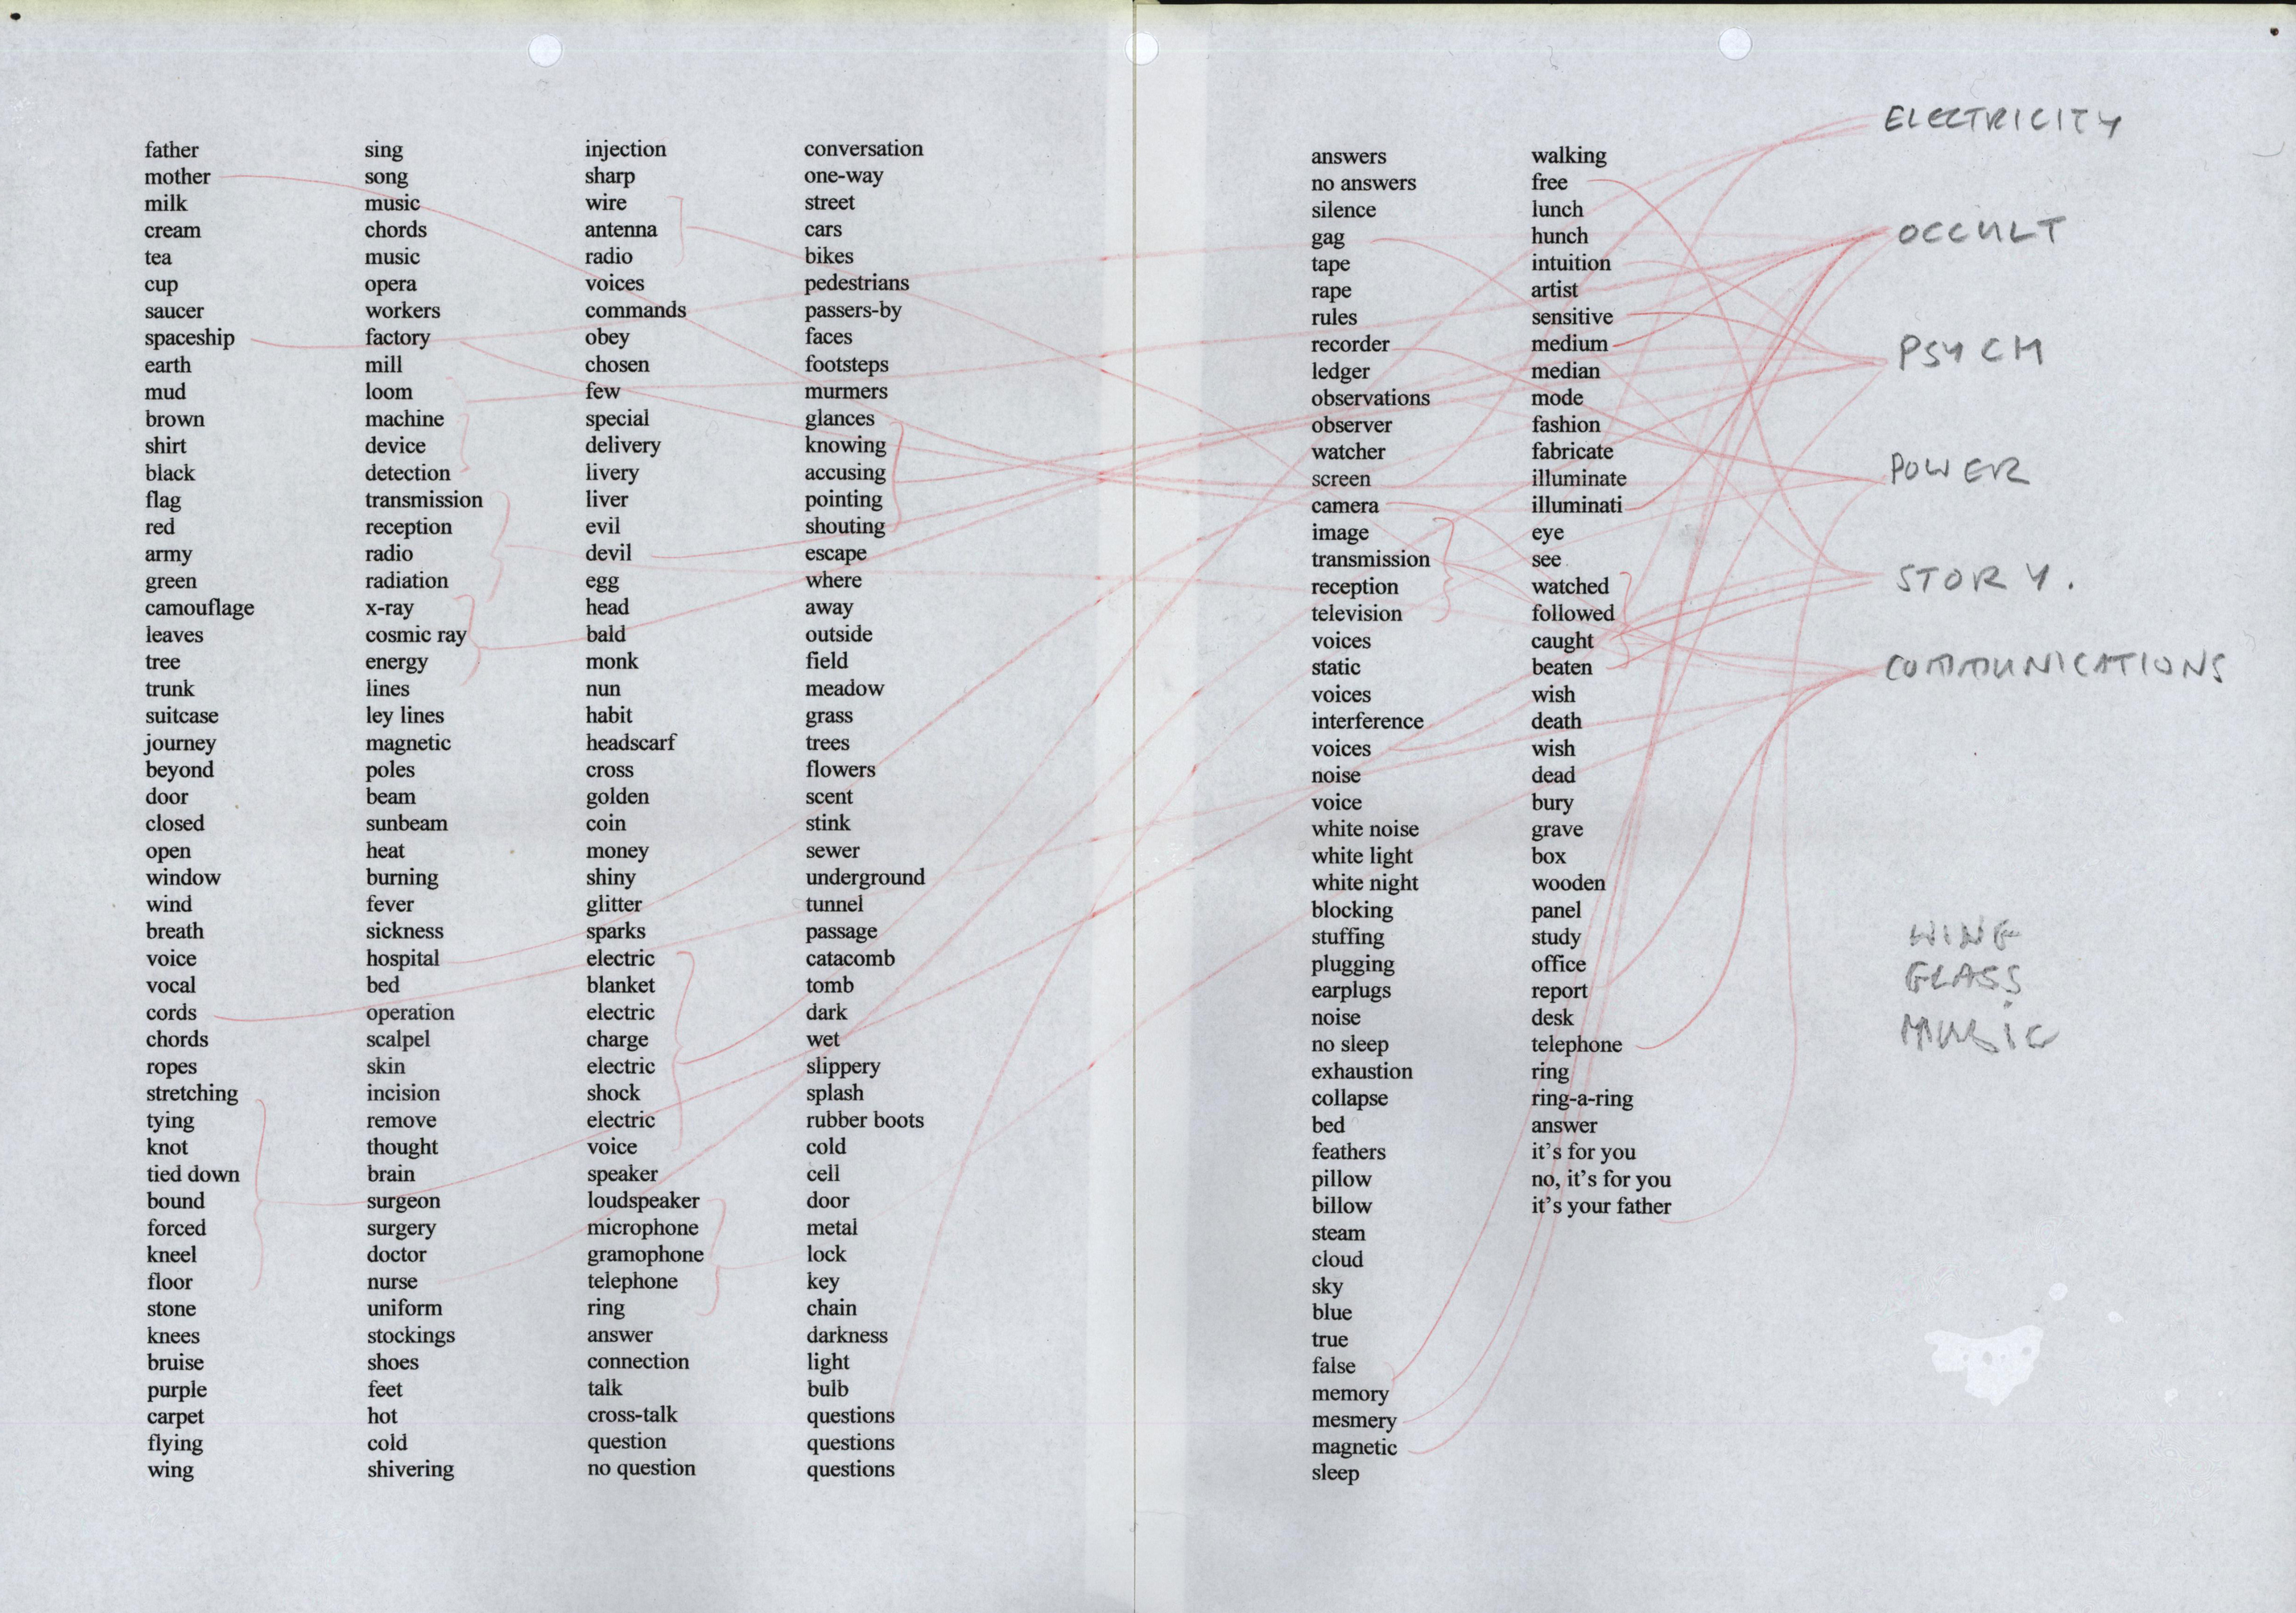 father
mother
milk
cream
tea
cup
saucer
spaceship
earth
mud
brown
shirt
black
flag
red
army
green
camouflage
leaves
tree
trunk
suitcase
journey
beyond
door
closed
open
window
wind
breath
voice
vocal
cords
chords
ropes
stretching
tying
knot
tied down
bound
forced
kneel
floor
stone
knees
bruise
purple
carpet
flying
wing
sing
song
music
chords
music
opera
workers
factory
mill
loom
machine
device
detection
transmission
reception
radio
radiation
x-ray
cosmic ray
energy
lines
ley lines
magnetic
poles
beam
sunbeam
heat
burning
fever
sickness
hospital
bed
operation
scalpel
skin
incision
remove
thought
brain
surgeon
surgery
doctor
nurse
uniform
stockings
shoes
feet
hot
cold
shivering
injection
sharp
wire
antenna
radio
voices
commands
obey
chosen
few
special
delivery
livery
liver
evil
devil
egg
head
bald
monk
nun
habit
headscarf
cross
golden
coin
money
shiny
glitter
sparks
electric
blanket
electric
charge
electric
shock
electric
voice
speaker
loudspeaker
microphone
gramophone
telephone
ring
answer
connection
talk
cross-talk
question
no question
conversation
one-way
street
cars
bikes
pedestrians
passers-by
faces
footsteps
murmers
glances
knowing
accusing
pointing
shouting
escape
where
away
outside
field
meadow
grass
trees
flowers
scent
stink
sewer
underground
tunnel
passage
catacomb
tomb
dark
wet
slippery
splash
rubber boots
cold
cell
door
metal
lock
key
chain
darkness
light
bulb
questions
questions
questions
answers
no answers
silence
gag
tape
rape
rules
recorder
ledger
observations
observer
watcher
screen
camera
image
transmission
reception
television
voices
static
voices
interference
voices
noise
voice
white noise
white light
white night
blocking
stuffing
plugging
earplugs
noise
no sleep
exhaustion
collapse
bed
feathers
pillow
billow
steam
cloud
sky
blue
true
false
memory
mesmery
magnetic
sleep
walking
free
lunch
hunch
intuition
artist
sensitive
medium
median
mode
fashion
fabricate
illuminate
illuminati
eye
see
watched
followed
caught
beaten
wish
death
wish
dead
bury
grave
box
wooden
panel
study
office
report
desk
telephone
ring
ring-a-ring
answer
it's for you
no, it's for you
it's your father
ELECTRICITY
OCCULT
PSYCH
POWER
STORY.
COMMUNICATIONS
WINE
GLASS
MUSIC